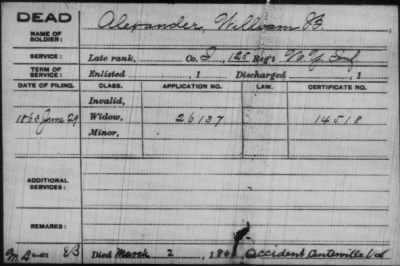 DEAD
NAME OF SOLDIER: Alexander, William B.
SERVICE: Late rank, Co. I, 125 Reg't N. Y. Inf
TERM OF SERVICE: Enlisted , 1 Discharged , 1
DATE OF FILING. CLASS. APPLICATION NO. LAW. CERTIFICATE NO.
Invalid,
1863 June 29 Widow, 26137 14518
Minor,
ADDITIONAL SERVICES:
REMARKS:
Died March 2, 186 Accident Centerville Va